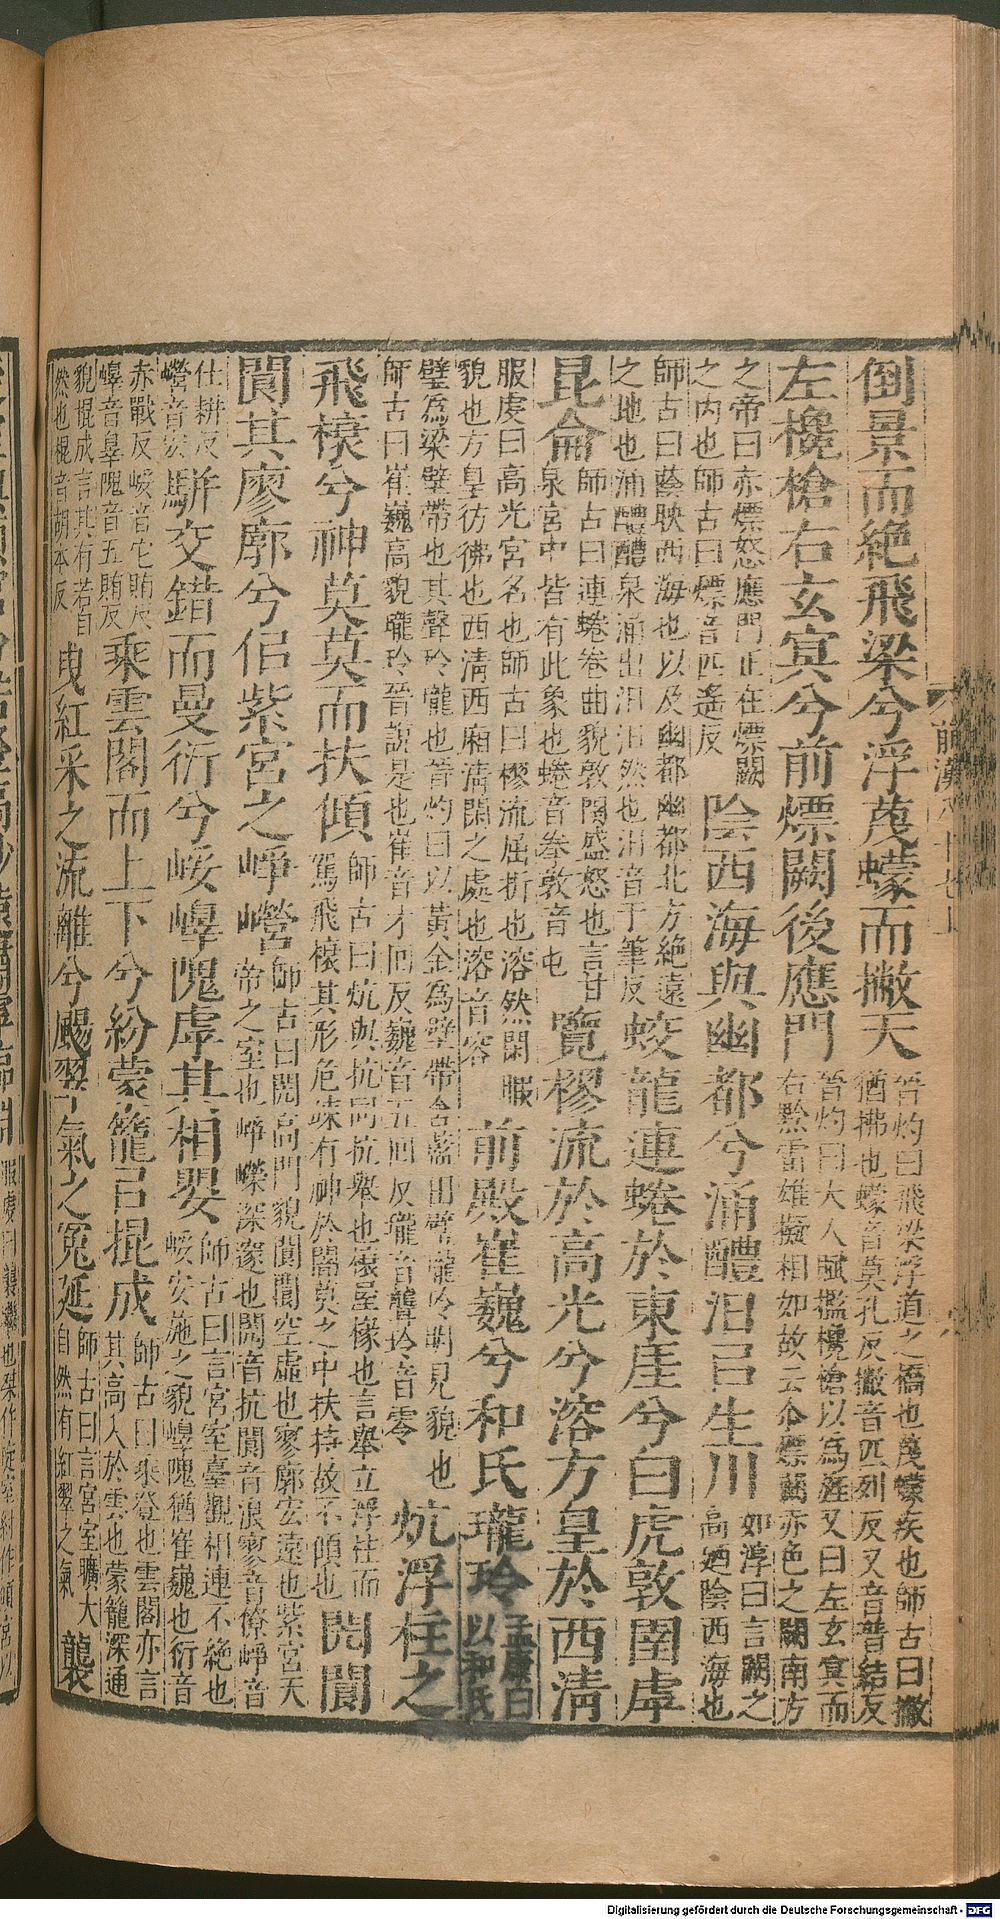 前漢八十七上
倒景而絶飛梁兮浮蔑蠓而撇天
晉灼曰飛梁浮道之橋也蔑蠓疾也師古曰撇
猶拂也蠓音莫孔反撇音匹列反又音普結反
左欃槍右玄冥兮前熛闕後應門
晉灼曰大人賦攙欃槍以爲旌又曰左玄冥而
右黔雷雄擬相如故云尒熛闕赤色之闕南方
之帝曰赤熛怒應門正在熛闕
之内也師古曰熛音匹遥反
陰西海與幽都兮涌醴汩㠯生川
如淳曰言闕之
高廼陰西海也
師古曰蔭映西海也以及幽都幽都北方絶遠
之地也涌醴醴泉涌出汩汩然也汩音于筆反
蛟龍連蜷於東厓兮白虎敦圉虖
昆侖
師古曰連蜷卷曲貌敦圉盛怒也言甘
泉宮中皆有此象也蜷音拳敦音屯
覽樛流於高光兮溶方皇於西清
服虔曰高光宮名也師古曰樛流屈折也溶然閑暇
貌也方皇彷彿也西清西廂清閑之處也溶音容
前殿崔巍兮和氏瓏玲
孟康曰
以和氏
璧爲梁壁帶也其聲玲瓏也晉灼曰以黄金爲壁帶含藍田璧瓏玲明見貌也
師古曰崔巍高貌瓏玲晉說是也崔音才回反巍音五回反瓏音聾玲音零
炕浮柱之
飛榱兮神莫莫而扶傾
師古曰炕與抗同抗舉也榱屋椽也言舉立浮柱而
駕飛榱其形危竦有神於闇莫之中扶持故不傾也
閌閬
閬其廖廓兮佀紫宮之崢嶸
師古曰閌高門貌閬閬空虛也寥廓宏遠也紫宮天
帝之室也崢嶸深邃也閌音抗閬音浪寥音僚崢音
仕耕反
嶸音宏
駢交錯而曼衍兮㟎嶵隗虖其相嬰
師古曰言宮室臺觀相連不絶也
㟎安施之貌嶵隗猶崔巍也衍音
赤戰反㟎音它賄反
嶵音辠隗音五賄反
乘雲閣而上下兮紛蒙籠㠯掍成
師古曰乘登也雲閣亦言
其高入於雲也蒙籠深通
貌掍成言其有若自
然也掍音胡本反
曳紅采之流離兮颺翠氣之冤延
師古曰言宮室曠大
自然有紅翠之氣
襲
Digitalisierung gefördert durch die Deutsche Forschungsgemeinschaft - DFG